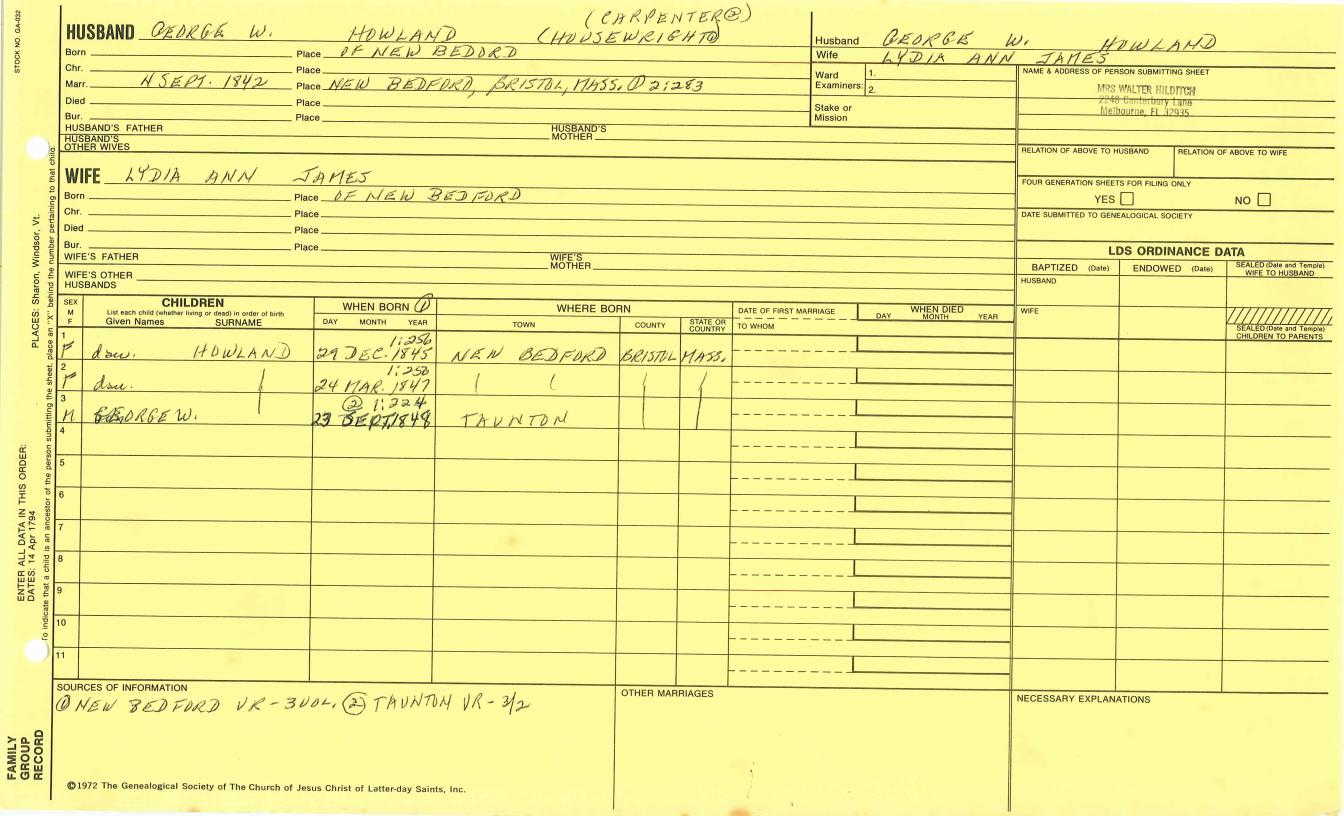 STOCK NO. GA-032
(CARPENTER②)
HUSBAND GEORGE W. HOWLAND (HOUSEWRIGHT①)
Born Place OF NEW BEDORD
Chr. Place
Marr. 4 SEPT. 1842 Place NEW BEDFORD, BRISTOL, MASS. ① 2:283
Died Place
Bur. Place
HUSBAND'S FATHER HUSBAND'S MOTHER
HUSBAND'S OTHER WIVES
Husband GEORGE W. HOWLAND
Wife LYDIA ANN JAMES
Ward Examiners: 1.
2.
Stake or Mission
NAME & ADDRESS OF PERSON SUBMITTING SHEET
MRS WALTER HILDITCH
2248 Canterbury Lane
Melbourne, FL 32935
RELATION OF ABOVE TO HUSBAND RELATION OF ABOVE TO WIFE
FOUR GENERATION SHEETS FOR FILING ONLY
YES NO
DATE SUBMITTED TO GENEALOGICAL SOCIETY
WIFE LYDIA ANN JAMES
Born Place OF NEW BEDFORD
Chr. Place
Died Place
Bur. Place
WIFE'S FATHER WIFE'S MOTHER
WIFE'S OTHER HUSBANDS
LDS ORDINANCE DATA
BAPTIZED (Date) ENDOWED (Date) SEALED (Date and Temple) WIFE TO HUSBAND
HUSBAND
WIFE
SEALED (Date and Temple) CHILDREN TO PARENTS
SEX M F
CHILDREN
List each child (whether living or dead) in order of birth
Given Names SURNAME
WHEN BORN ①
DAY MONTH YEAR
WHERE BORN
TOWN COUNTY STATE OR COUNTRY
DATE OF FIRST MARRIAGE
TO WHOM
WHEN DIED
DAY MONTH YEAR
1 1:256
F dau. HOWLAND 29 DEC. 1845 NEW BEDFORD BRISTOL MASS.
2 1:256
F dau. 24 MAR. 1847
3 ② 1:224
M GEORGE W. 23 SEPT. 1848 TAUNTON
4
5
6
7
8
9
10
11
SOURCES OF INFORMATION
① NEW BEDFORD VR-3VOL. ② TAUNTON VR-3/2
OTHER MARRIAGES
NECESSARY EXPLANATIONS
©1972 The Genealogical Society of The Church of Jesus Christ of Latter-day Saints, Inc.
FAMILY GROUP RECORD
ENTER ALL DATA IN THIS ORDER:
DATES: 14 Apr 1794
PLACES: Sharon, Windsor, Vt.
To indicate that a child is an ancestor of the person submitting the sheet, place an "X" behind the number pertaining to that child.